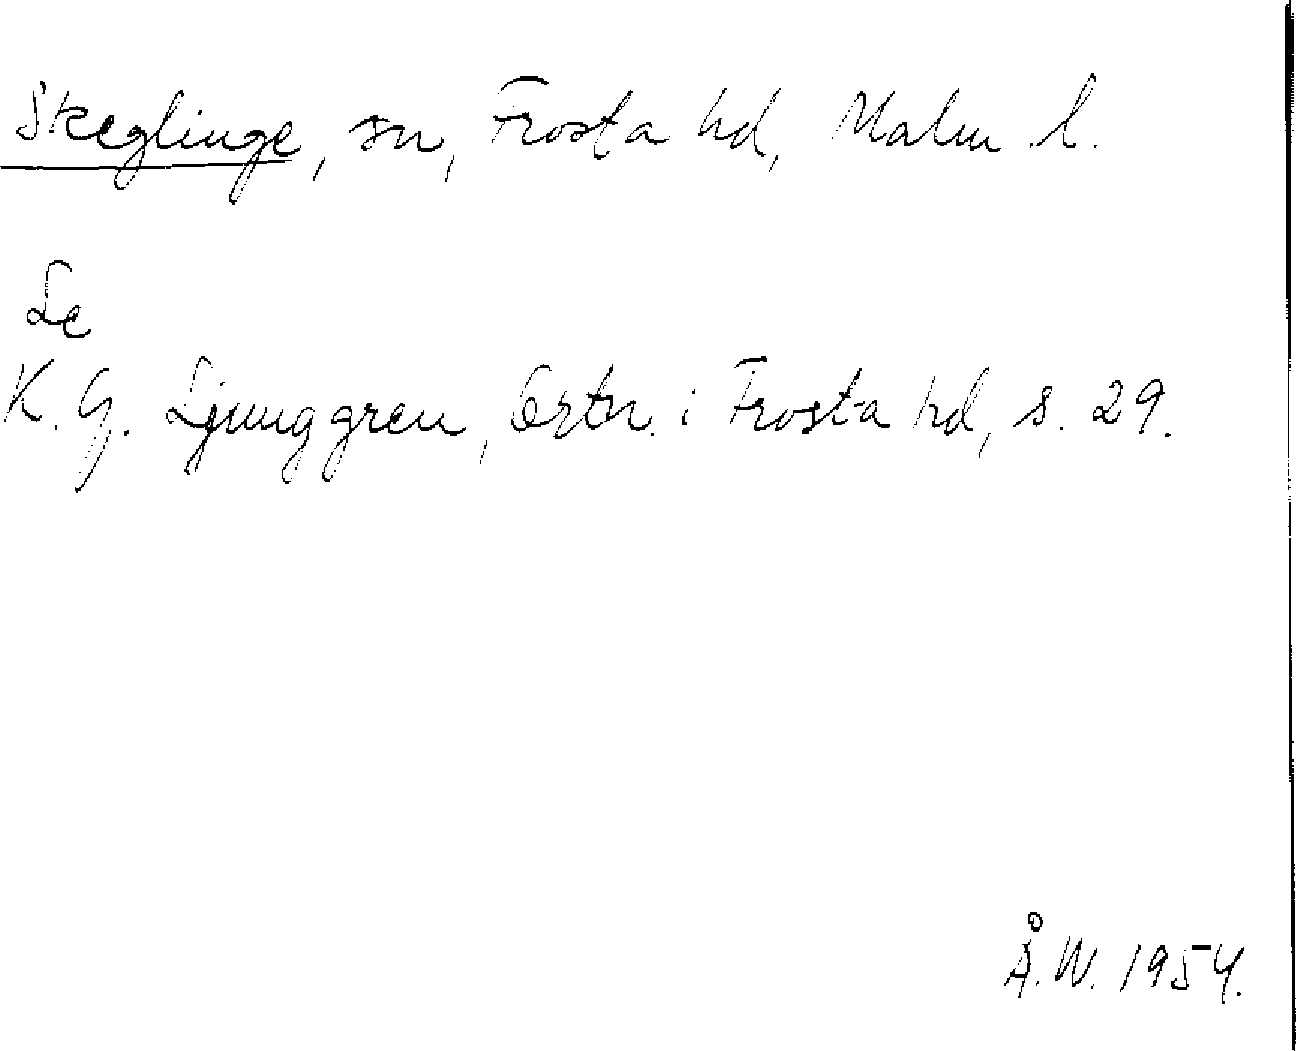 Skeglinge, sn, Frosta hd, Malm. l.
Se
K. G. Ljunggren, Ortn. i Frosta hd, s. 29.
Å. W. 1954.